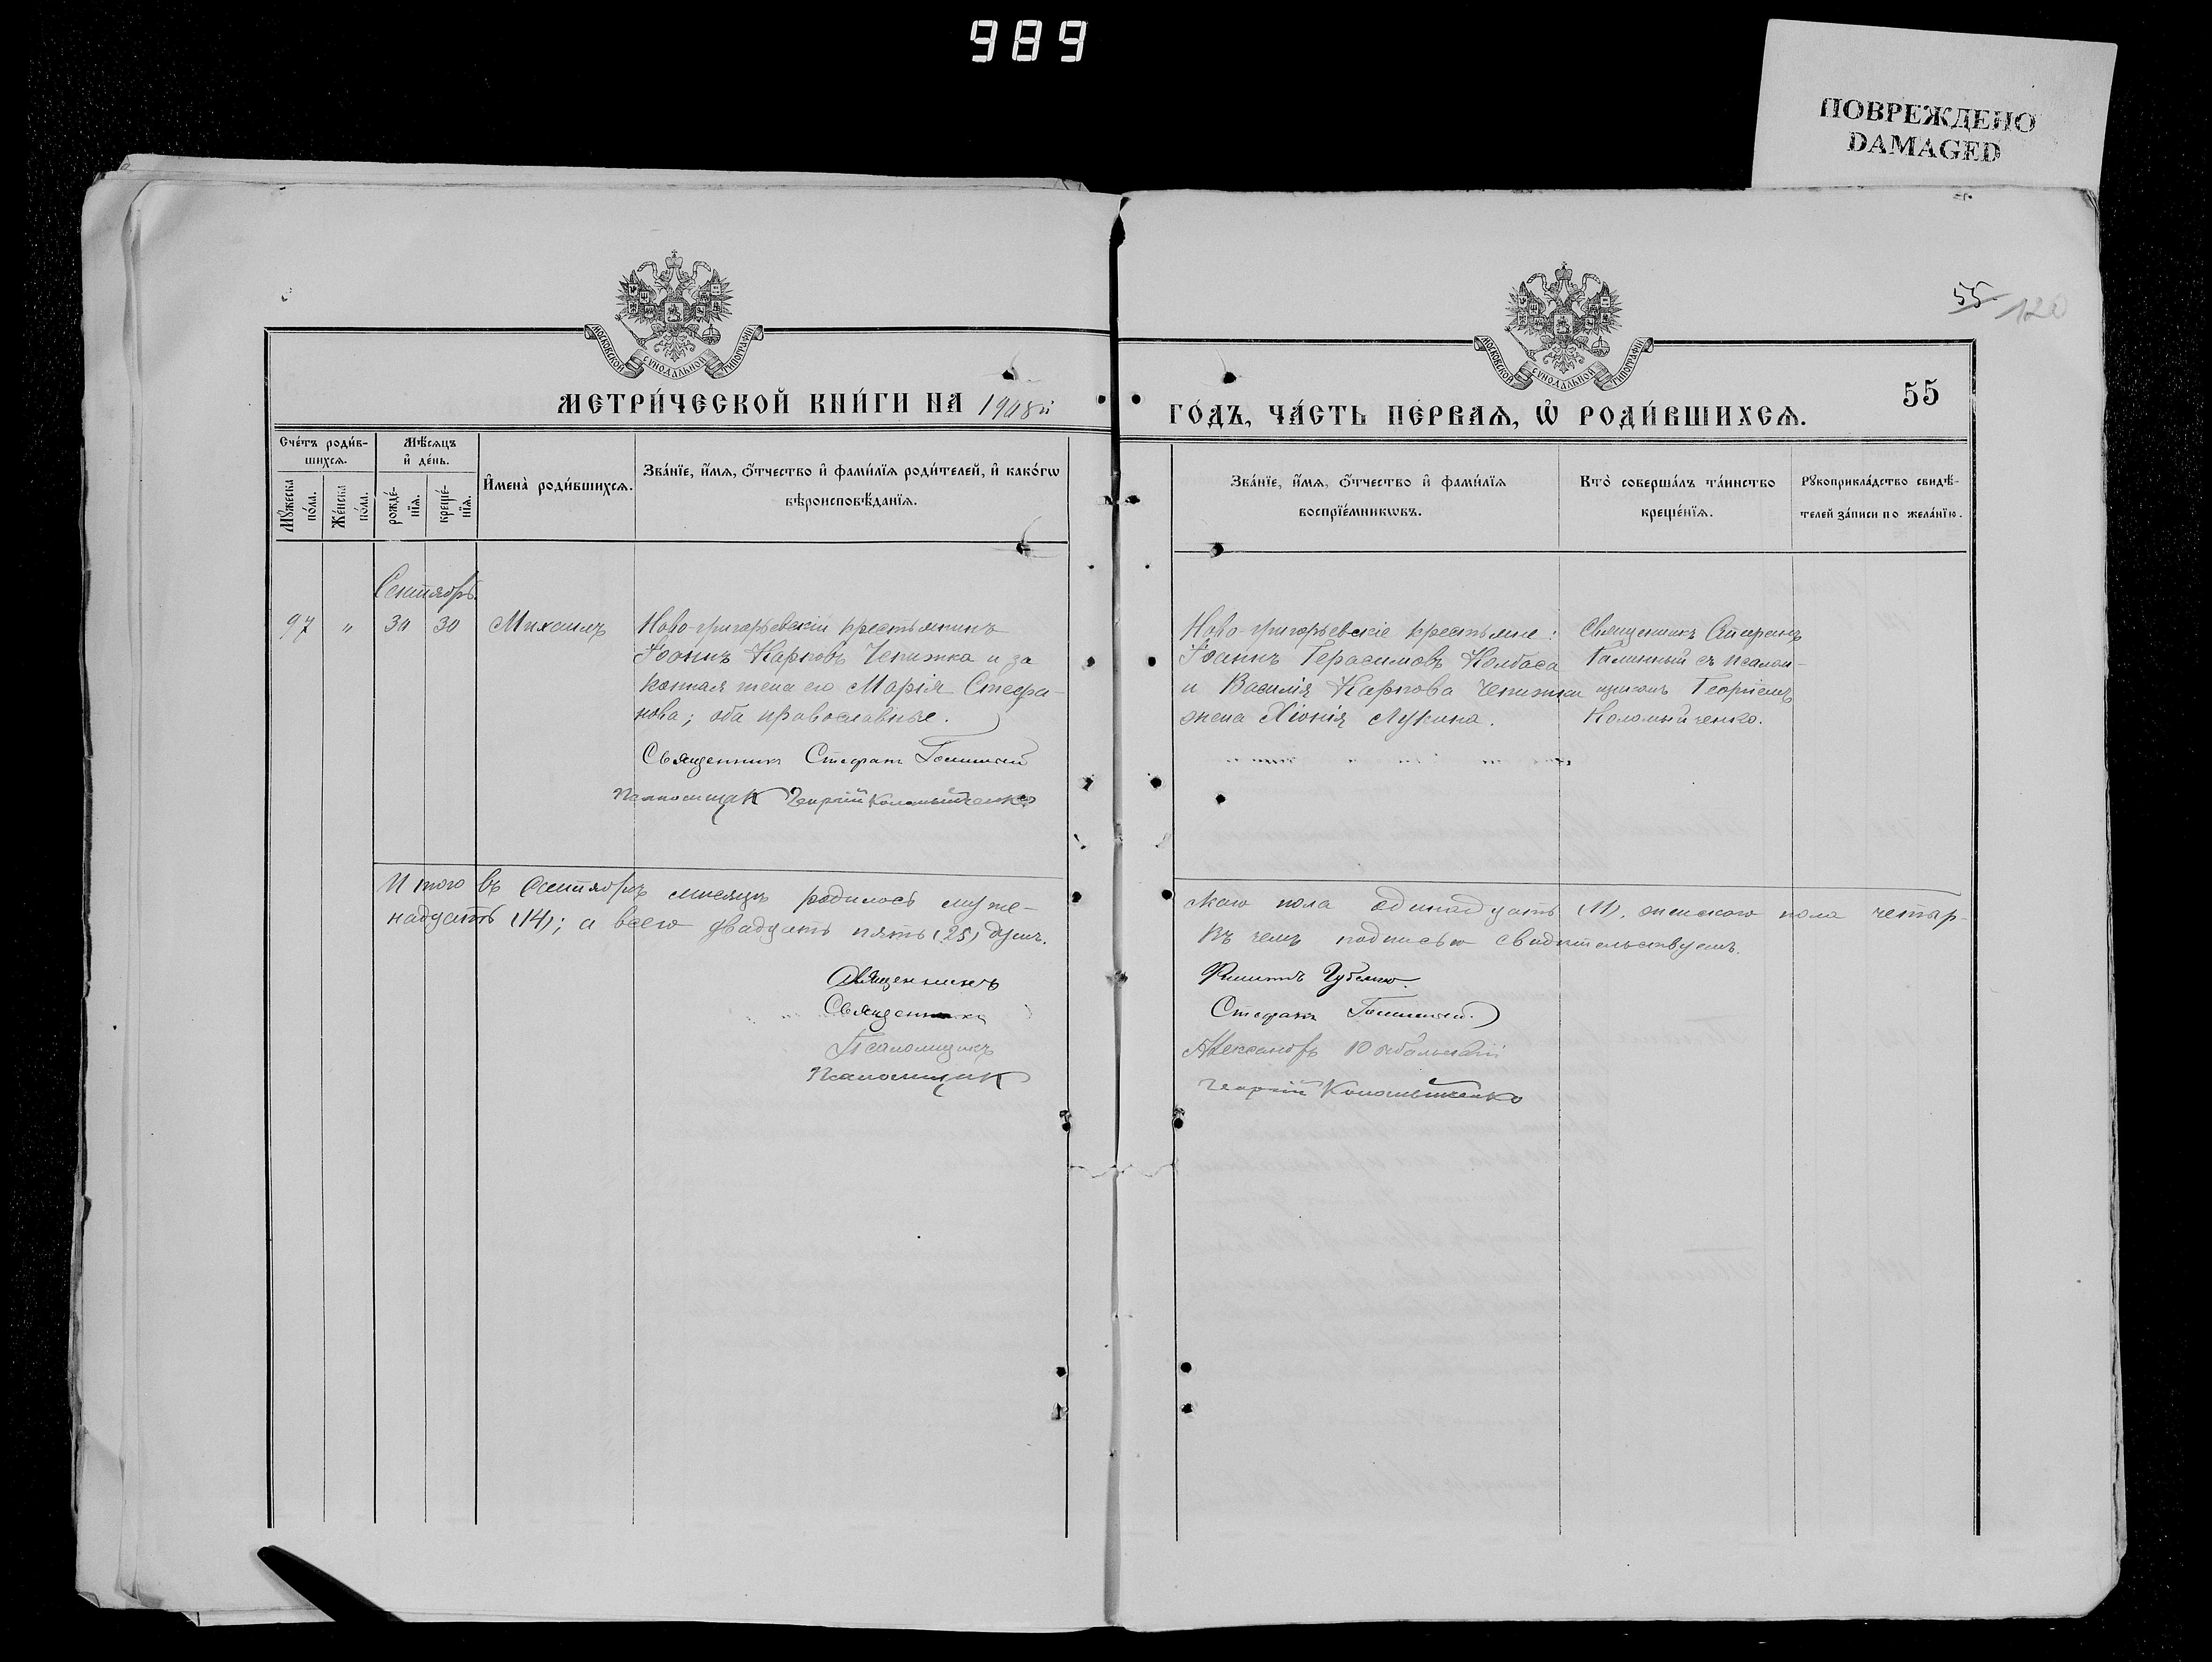 989
ПОВРЕЖДЕНО
DAMAGED
55
120
МОСКОВСКОЙ СѴНОДАЛЬНОЙ ТИПОГРАФІИ
МОСКОВСКОЙ СѴНОДАЛЬНОЙ ТИПОГРАФІИ
МЕТРИ́ЧЕСКОЙ КНИ́ГИ НА 1908й
ГО́ДЪ, ЧА́СТЬ ПЕ́РВАѦ, Ѡ҆ РОДИ́ВШИХСѦ.
55
Сче́тъ роди́в-
шихсѧ.
Мѣ́сѧцъ
и҆ де́нь.
Мꙋ́жеска
по́ла.
Же́нска
по́ла.
рожде́-
нїѧ.
креще́-
нїѧ.
И҆мена̀ роди́вшихсѧ.
Зва́нїе, и҆́мѧ, ѻ҆́тчество и҆ фами́лїѧ роди́телей, и҆ како́гѡ
вѣроисповѣ́данїѧ.
Зва́нїе, и҆́мѧ, ѻ҆́тчество и҆ фами́лїѧ
воспрїе́мникѡвъ.
Кто̀ соверша́лъ та́инство
креще́нїѧ.
Рꙋкоприкла́дство свидѣ́-
телей за́писи по жела́нїю.
Сентябрь.
97 " 30 30 Михаилъ
Ново-григорьевскій крестьянинъ
Іоаннъ Карповъ Чепижка и за
конная жена его Марія Стефа-
нова; оба православные.
Священникъ Стефанъ
Псаломщик Георгій Коломыйченко
Ново-григорьевскіе крестьяне:
Іоаннъ Герасимовъ Колбаса
и Василія Карпова Чепижки
жена Хіонія Лукина.
Священникъ Стефанъ
съ псалом-
щикомъ Георгіемъ
Коломыйченко.
Итого въ Сентябрѣ мѣсяцѣ родилось муже-
скаго пола одинадцать (11), женскаго пола четыр-
надцать (14); а всего двадцать пять (25) душъ.
Въ чемъ подписью свидѣтельствуемъ.
Священникъ
Филиппъ Губенко.
Священникъ
Стефанъ
Псаломщикъ
Александръ
Псаломщик
Георгій Коломыйченко